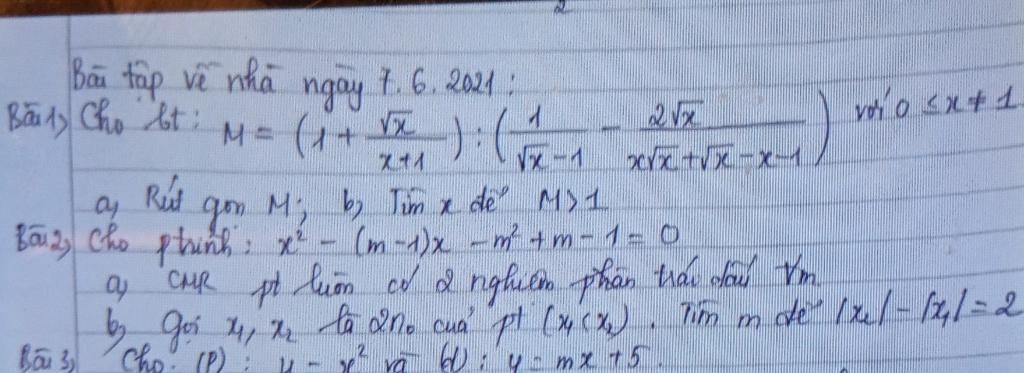 Bài tập về nhà ngày 7.6.2021:
Bài 1) Cho bt: M = (1 + √x/(x+1)) : (1/(√x-1) - 2√x/(x√x+√x-x-1)) với 0 ≤ x ≠ 1
a) Rút gọn M; b) Tìm x để M > 1
Bài 2) Cho ptrình: x² - (m-1)x - m² + m - 1 = 0
a) CMR pt luôn có 2 nghiệm phân trái dấu ∀m
b) gọi x₁, x₂ là 2n₀ của pt (x₁<x₂). Tìm m để |x₂| - |x₁| = 2
Bài 3) Cho (P): y = x² và (d): y = mx + 5.